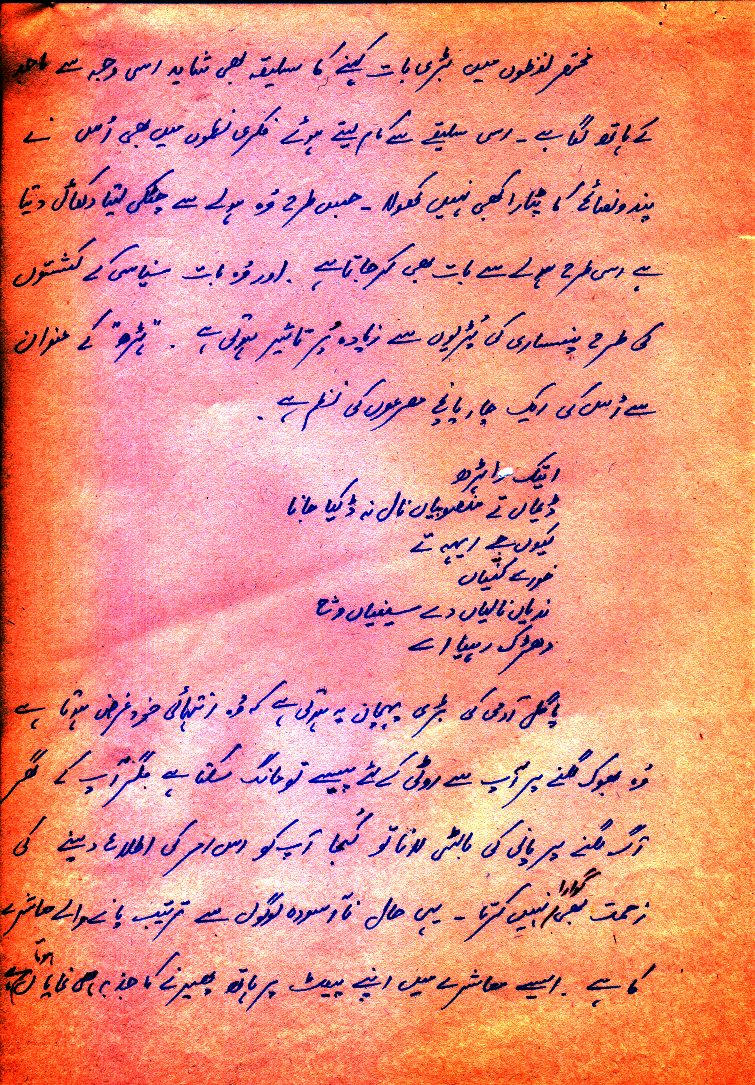 مختصر لفظوں میں بڑی بات کہنے کا سلیقہ بھی شاید اسی وجہ سے ماجد
کے ہاتھ لگا ہے ۔ اسی سلیقے سے کام لیتے ہوئے فکری نظموں میں بھی اُس نے
پندونصائح کا پٹارا کبھی نہیں کھولا ۔ جس طرح وُہ ہولے سے چٹکی لیتا دکھائی دیتا
ہے اسی طرح ہولے سے بات بھی کرجاتا ہے ۔ اور وُہ بات سنیاسی کے کشتوں
کی طرح پنساری کی پُڑیوں سے زیادہ پُرتاثیر ہوتی ہے ۔ "ہڑھ" کے عنوان
سے اُس کی ایک چار پانچ مصرعوں کی نظم ہے ۔
اتیک دا ہڑھ
ڈیماں تے منصوبیاں نال نہ ڈکیا جانا
کیوں جے ایہہ تے
خورے کنّیاں
ندیاں نالیاں دے سینیاں وچ
دھڑک رہیا اے
پاگل آدمی کی بڑی پہچان یہ ہوتی ہے کہ وُہ انتہائی خودغرض ہوتا ہے
وُہ بھوک لگنے پر آپ سے روٹی کے لئے پیسے تو مانگ سکتا ہے مگر آپ کے گھر
آگ لگنے پر پانی کی بالٹی لانا تو کُجا آپ کو اس امر کی اطلاع دینے کی
زحمت بھی گوارا نہیں کرتا ۔ یہی حال ناآسودہ لوگوں سے ترتیب پانے والے معاشرے
کا ہے ۔ ایسے معاشرے میں اپنے پیٹ پر ہاتھ پھیرنے کا جذبہ ہی نمایاں ہوتا ہے